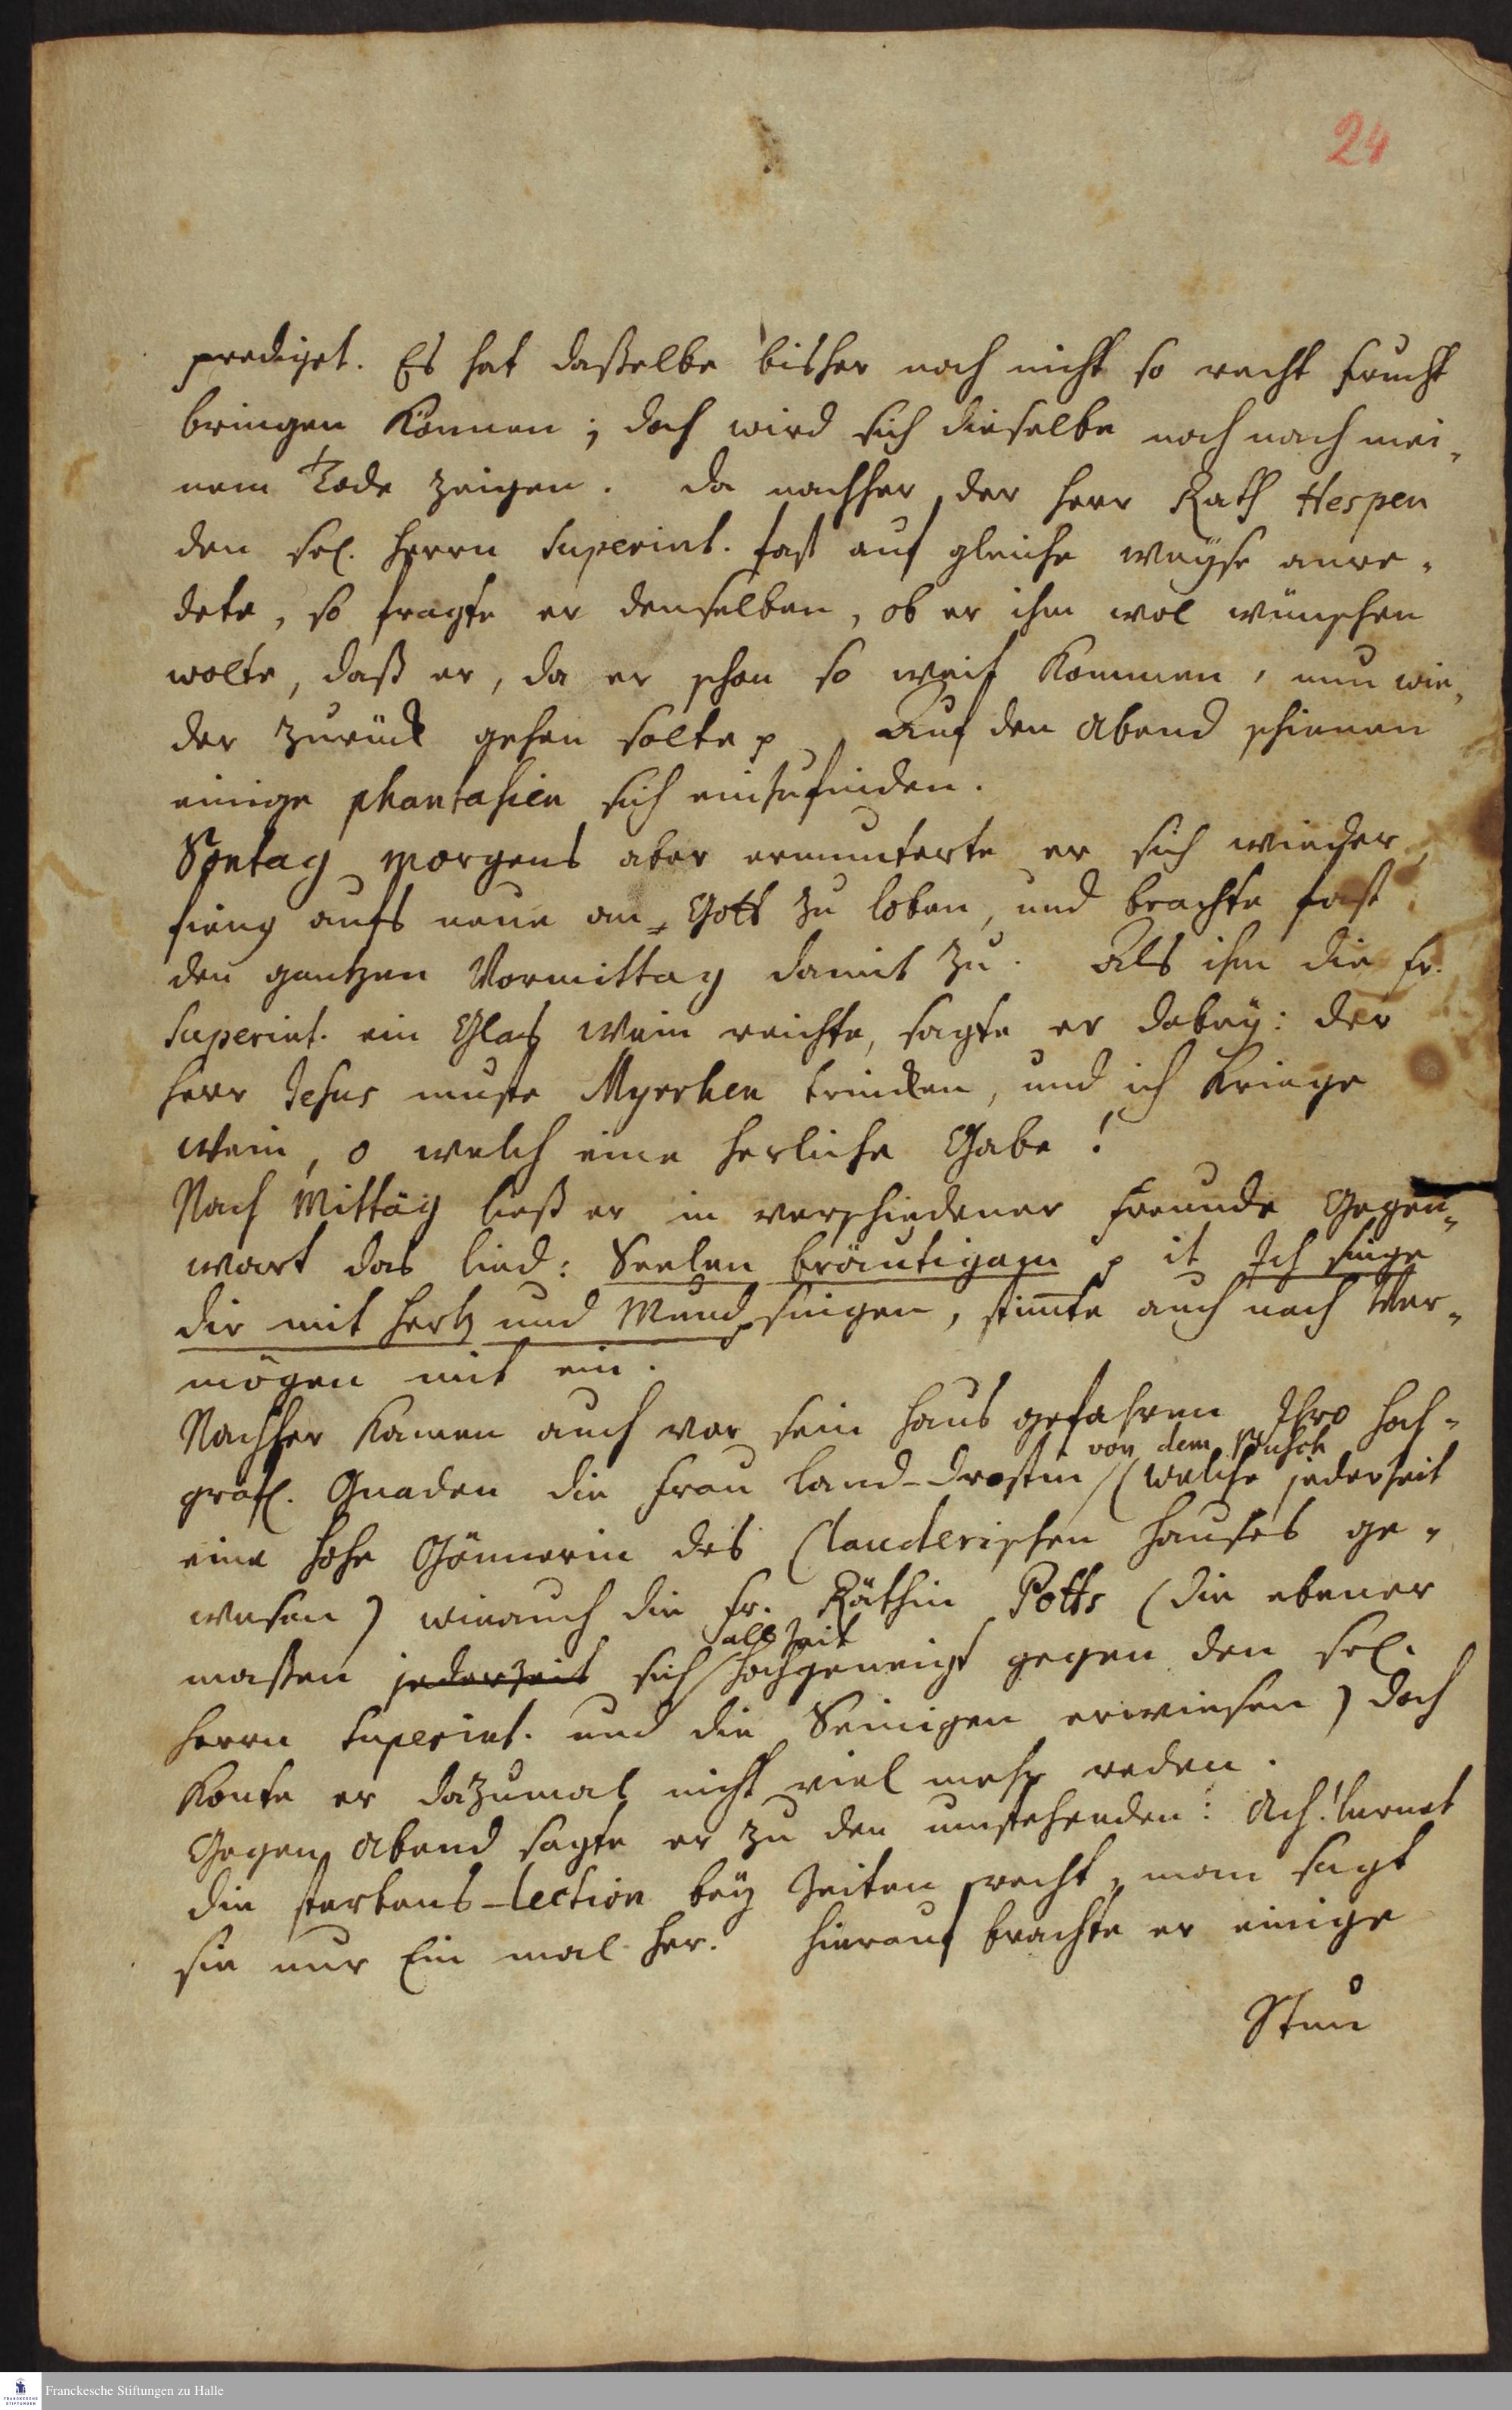 24
prediget. Es hat daßelbe bisher noch nicht so recht frucht
bringen können; doch wird sich dieselbe noch nach mei-
nem Tode zeigen. Da nachher der Herr Rath Hespen
den sel. Herrn Superint. fast auf gleiche weyse anre-
dete, so fragte er denselben, ob er ihm wol wünschen
wolte, daß er, da er schon so weit kommen, nun wie-
der zurück gehen solte p. Auf den Abend schienen
einige phantasien sich einzufinden.
Sontag Morgens aber ermunterte er sich wieder,
fieng aufs neue an, Gott zu loben, und brachte fast
den gantzen Vormittag damit zu. Als ihm die Fr.
Superint. ein Glas Wein reichte, sagte er dabey: Der
Herr Jesus muste Myrrhen trincken, und ich kriege
Wein, o welch eine herliche Gabe!
Nach Mittag ließ er in verschiedener Freunde Gegen-
wart das lied: Seelen bräutigam p it Ich singe
dir mit Hertz und Mund p singen, stimte auch nach Ver-
mögen mit ein.
Nachher kamen auch vor sein Haus gefahren Ihro Hoch-
gräfl. Gnaden die Frau Land-Drostin von dem Busch (welche jederzeit
eine hohe Gönnerin des Clauderischen Hauses ge-
wesen) wieauch die Fr. Räthin Potts (die ebener
maßen jederzeit sich allezeit hochgeneigt gegen den sel.
Herrn Superint. und die Seinigen erwiesen) doch
konte er dazumal nicht viel mehr reden.
Gegen Abend sagte er zu den umstehenden: Ach! lernet
die sterbens-lection bey Zeiten recht, man sagt
sie nur Ein mal her. Hierauf brachte er einige
Stun
Franckesche Stiftungen zu Halle